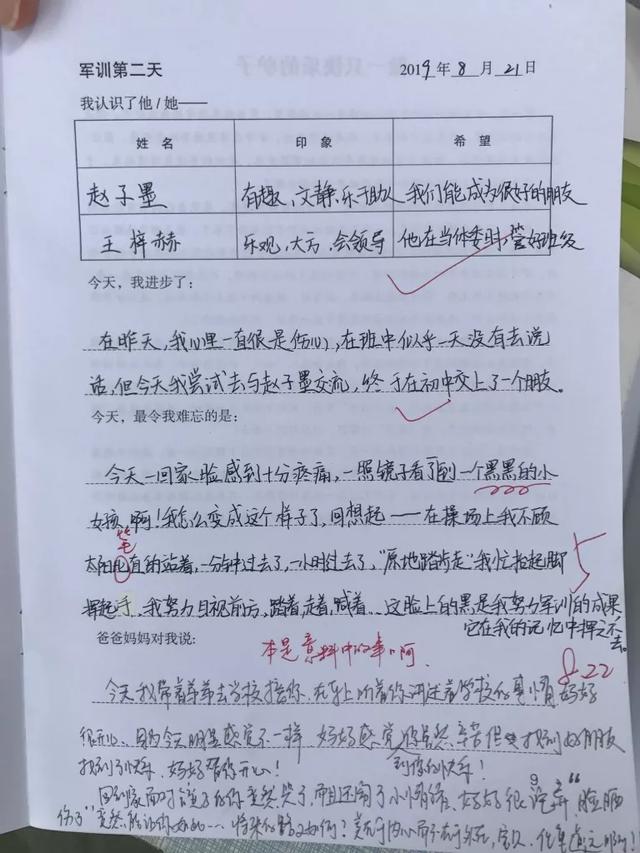 军训第二天 2019年8月21日
我认识了他/她——
姓名 印象 希望
赵子墨 有趣,文静,乐于助人 我们能成为很好的朋友
王梓赫 乐观,大方,会领导 他在当体委时,管好班级
今天,我进步了:
在昨天,我心里一直很是伤心,在班中似乎一天没有去说
话,但今天我尝试去与赵子墨交流,终于在初中交上了一个朋友。
今天,最令我难忘的是:
今天一回家脸感到十分疼痛,一照镜子看到一个黑黑的小
女孩,啊!我怎么变成这个样子了,回想起——在操场上我不顾
笔
太阳 直的站着,一分钟过去了,一小时过去了,“原地踏步走”我忙抬起脚
挥起手,我努力目视前方,踏着,走着,喊着……这脸上的黑是我努力军训的成果
它在我的记忆中挥之不去。
爸爸妈妈对我说:
本是意料中的事啊,
8.22
今天我带着弟弟去学校接你,在车上听着你讲述着学校的事情 妈妈
很开心、因为今天明显感觉不一样 妈妈感觉你虽然辛苦但 找到好的朋友
找到了快乐,妈妈替你开心! 到你的快乐!
回到家面对镜子的你突然哭了,而且还闹了小情绪、妈妈很 “脸晒
伤了”
9